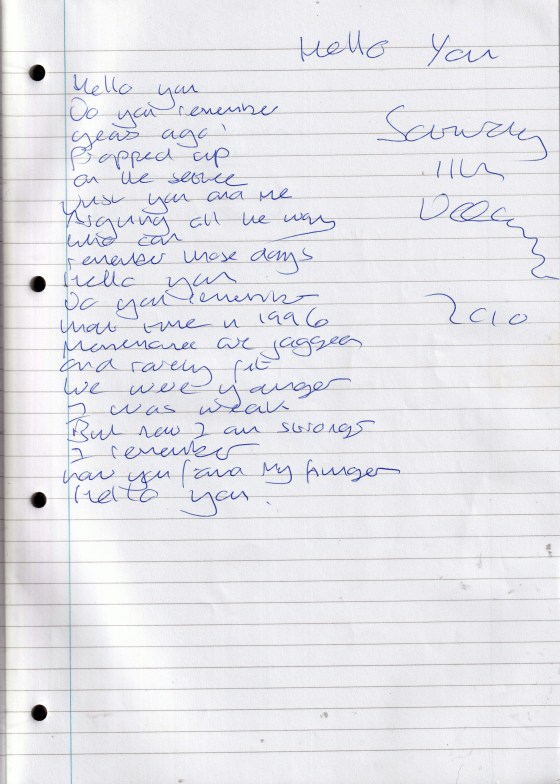 Hello You
Hello you
Do you remember
years ago
Propped up
on the settee
Just you and me
Arguing all the way
who can
remember those days
Hello you
Do you remember
that time in 1996
Memories are jagged
and rarely fit
We were younger
I was weak
But now I am stronger
I remember
how you found my hunger
Hello you.
Saturday
11th
December
2010